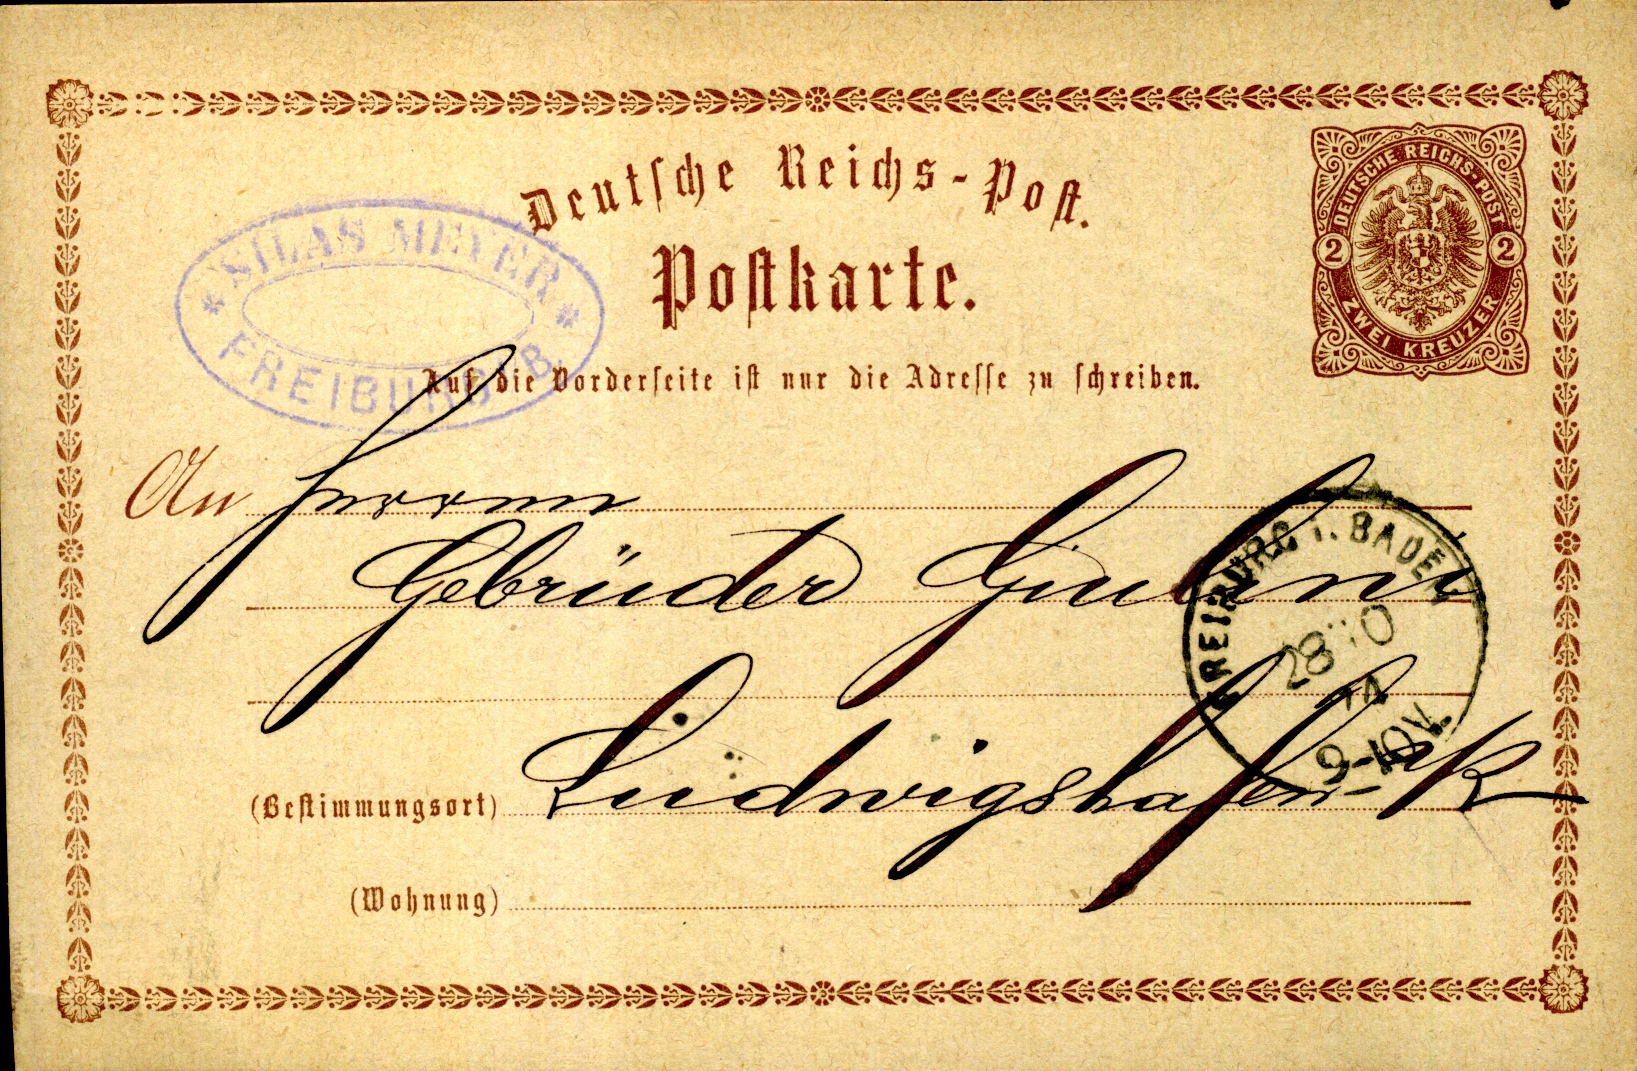 Deutsche Reichs-Post.
Postkarte.
DEUTSCHE REICHS-POST
2 2
ZWEI KREUZER
SILAS MEYER
FREIBURG i/B.
Auf die Vorderseite ist nur die Adresse zu schreiben.
An Herren
Gebrüder Giulini
FREIBURG i. BADEN
28 10
74
9-10V.
(Bestimmungsort) Ludwigshafen a/R
(Wohnung)